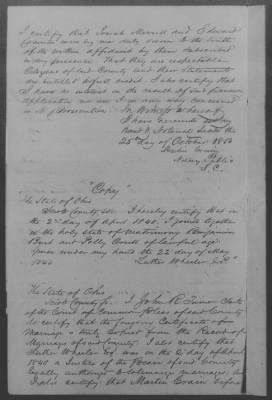 I certify that Josiah Morrill and Edward
Craven were by me duly sworn to the truth
of the within affidavit by them subscribed
in my presence. That they are respectable
Citizens of said County and their statements
are entitled to full credit. I also certify that
I have no interest in the result of said pension
application nor am I in any way concerned
in its prosecution. In testimony whereof
I have hereunto set my
hand & Notarial Seal this
25th day of October 1850
Martin Crain
Notary Public
S. C.
"Copy"
The State of Ohio
Scioto County ss. I hereby certify that on
the 2nd day of April 1840, I joined together
in the holy state of matrimony Benjamin
Burt and Polly Courts of lawful age
Given under my hand the 22 day of May
1840 Luther Wheeler J.P.
The State of Ohio
Scioto County ss. I John R Turner Clerk
of the Court of Common Pleas of said County
do certify that the foregoing Certificate of
marriage is truly Copied from the Record of
Marriages of said County. I also certify that
Luther Wheeler Esq was on the 2d day of April
1840 a Justice of the Peace of said County
legally authorized to solemnize marriages and
I also certify that Martin Crain before